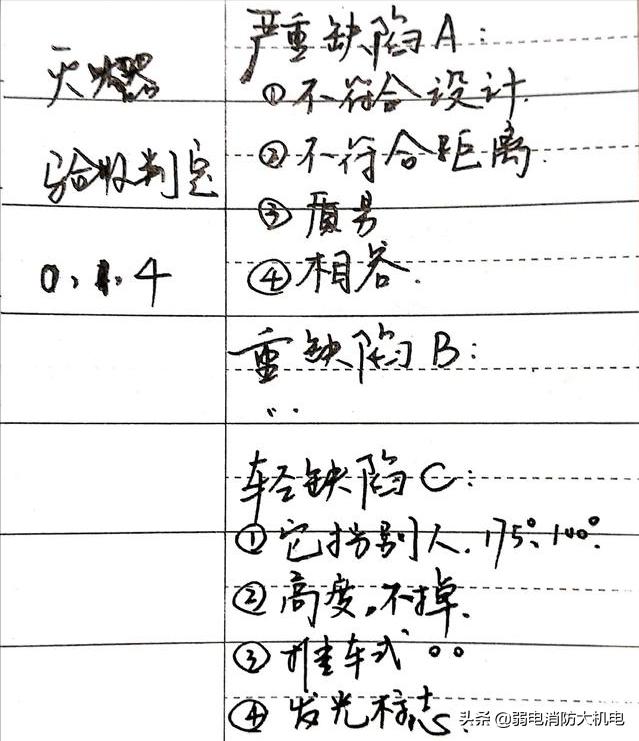 灭火器
验收判定
0、1、4
严重缺陷A：
①不符合设计.
②不符合距离.
③质量
④相容.
重缺陷B：
..
轻缺陷C：
①它挡别人.175°、100°.
②高度,不掉.
③推车式
④发光标志.
头条 @弱电消防大机电